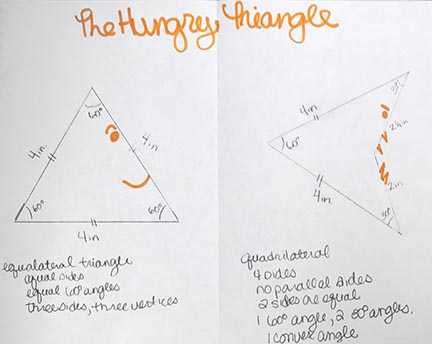 The Hungry Triangle
60°
4in
4in
60°
60°
4in
equalateral triangle
equal sides
equal 60° angles
three sides, three vertices
4in
60°
4in
2in
quadrilateral
4 sides
no parallel sides
2 sides are equal
1 60° angle, 2 angles.
1 convex angle